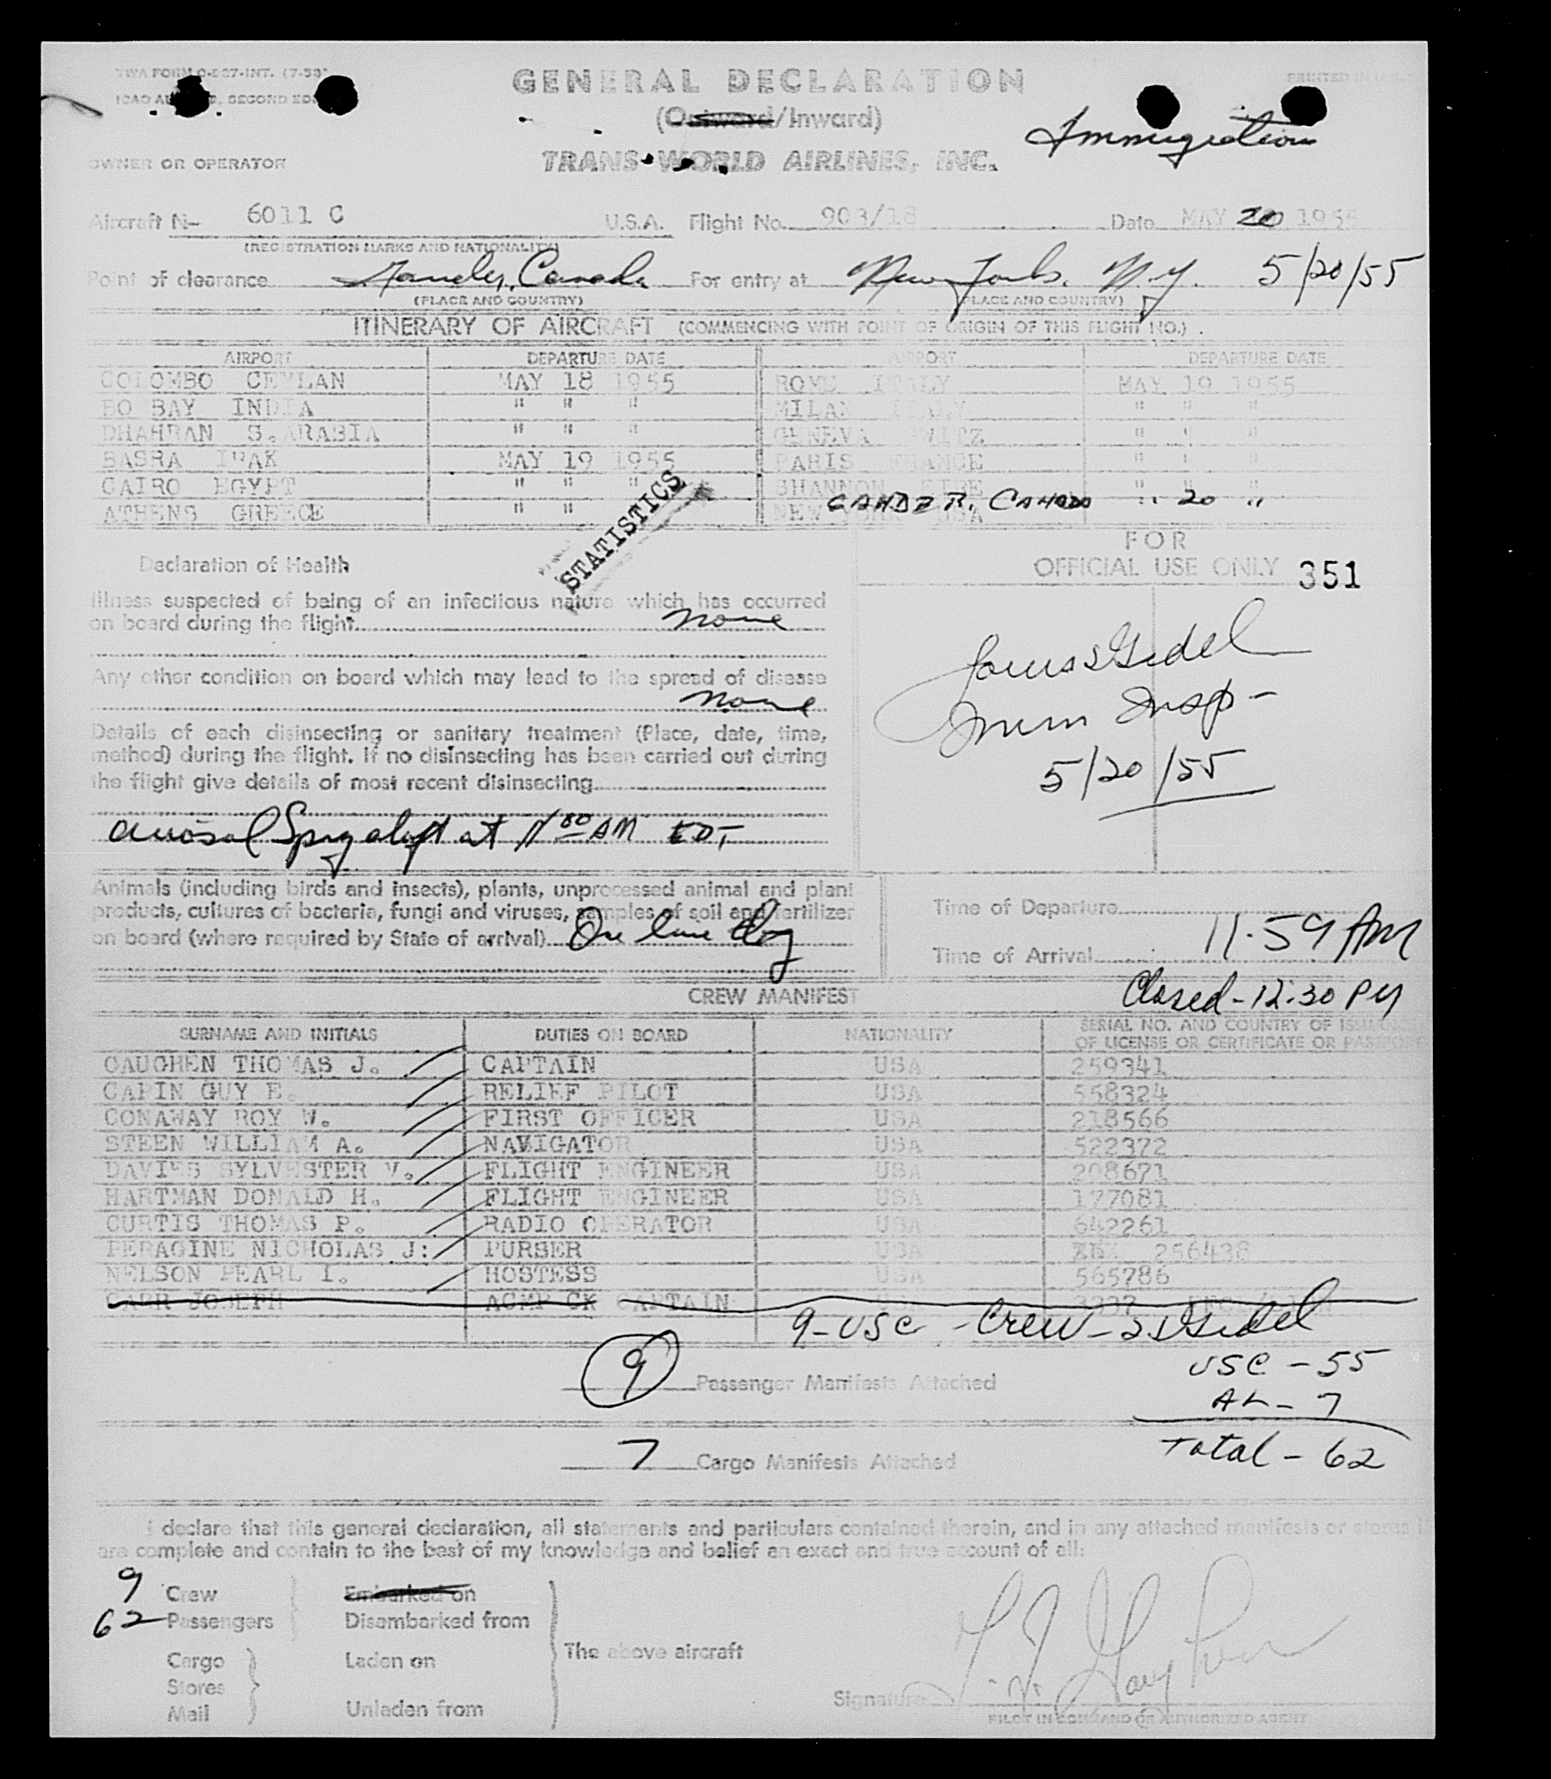 TWA FORM O-527-INT. (7-53)
PRINTED IN U.S.
GENERAL DECLARATION
ICAO SECOND ED.
(Outward/Inward)
Immigration
OWNER OR OPERATOR
TRANS WORLD AIRLINES, INC.
Aircraft N- 6011 C U.S.A. Flight No. 903/18 Date MAY 20 1955
(REGISTRATION MARKS AND NATIONALITY)
Point of clearance Gander, Canada For entry at New York, N.Y. 5/20/55
(PLACE AND COUNTRY) (PLACE AND COUNTRY)
ITINERARY OF AIRCRAFT (COMMENCING WITH POINT OF ORIGIN OF THIS FLIGHT NO.)
AIRPORT DEPARTURE DATE AIRPORT DEPARTURE DATE
COLOMBO CEYLAN MAY 18 1955 ROME ITALY MAY 19 1955
BO BAY INDIA " " " MILAN ITALY " " "
DHAHRAN S.ARABIA " " " GENEVA SWITZ " " "
BASRA IRAK MAY 19 1955 PARIS FRANCE " " "
CAIRO EGYPT " " " SHANNON EIRE " " "
GANDER, CANADA " 20 "
ATHENS GREECE " " NEW YORK USA
STATISTICS
FOR
OFFICIAL USE ONLY 351
Declaration of Health
Illness suspected of being of an infectious nature which has occurred
on board during the flight. none
Any other condition on board which may lead to the spread of disease
none
Imm Insp-
5/20/55
Details of each disinsecting or sanitary treatment (Place, date, time,
method) during the flight. If no disinsecting has been carried out during
the flight give details of most recent disinsecting
aerosol Spray aloft at 1100 AM EDT
Animals (including birds and insects), plants, unprocessed animal and plant
products, cultures of bacteria, fungi and viruses, samples of soil and fertilizer
on board (where required by State of arrival) One live dog
Time of Departure
Time of Arrival 11.59 AM
Closed - 12.30 PM
CREW MANIFEST
SURNAME AND INITIALS DUTIES ON BOARD NATIONALITY SERIAL NO. AND COUNTRY OF ISSUANCE
OF LICENSE OR CERTIFICATE OR PASSPORT
GAUGHEN THOMAS J. CAPTAIN USA 259341
CAPIN GUY E. RELIEF PILOT USA 558324
CONAWAY ROY W. FIRST OFFICER USA 218566
STEEN WILLIAM A. NAVIGATOR USA 522372
DAVIES SYLVESTER V. FLIGHT ENGINEER USA 208671
HARTMAN DONALD H. FLIGHT ENGINEER USA 177081
CURTIS THOMAS P. RADIO OPERATOR USA 642261
PERAGINE NICHOLAS J: PURSER USA 256438
NELSON PEARL I. HOSTESS USA 565786
CARR JOSEPH CK CAPTAIN
9-USC - Crew -
9 Passenger Manifests Attached
USC - 55
AL - 7
Total - 62
7 Cargo Manifests Attached
I declare that this general declaration, all statements and particulars contained therein, and in any attached manifests or stores
are complete and contain to the best of my knowledge and belief an exact and true account of all:
9 Crew Embarked on
62 Passengers Disembarked from
The above aircraft
Cargo Laden on
Stores
Mail Unladen from
Signature
PILOT IN COMMAND OR AUTHORIZED AGENT